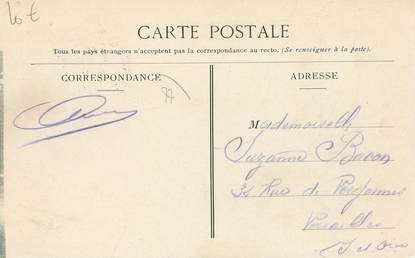 10 €
CARTE POSTALE
Tous les pays étrangers n'acceptent pas la correspondance au recto. (Se renseigner à la poste).
CORRESPONDANCE
ADRESSE
77
Mademoiselle
Suzanne Baron
Rue de
Versailles
S. et Oise